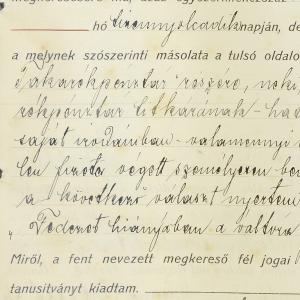 hó tizennyolcadik napján, de
a melynek szószerinti másolata a tulsó oldalo
takarékpénztár részére, neki
rékpénztár titkárának - ha
saját irodámban - valamennyi
len fizetés végett személyesen be
a következő választ nyertem
„Fedezet hiányában a váltóra
Miről, a fent nevezett megkereső fél jogai
tanusitványt kiadtam.